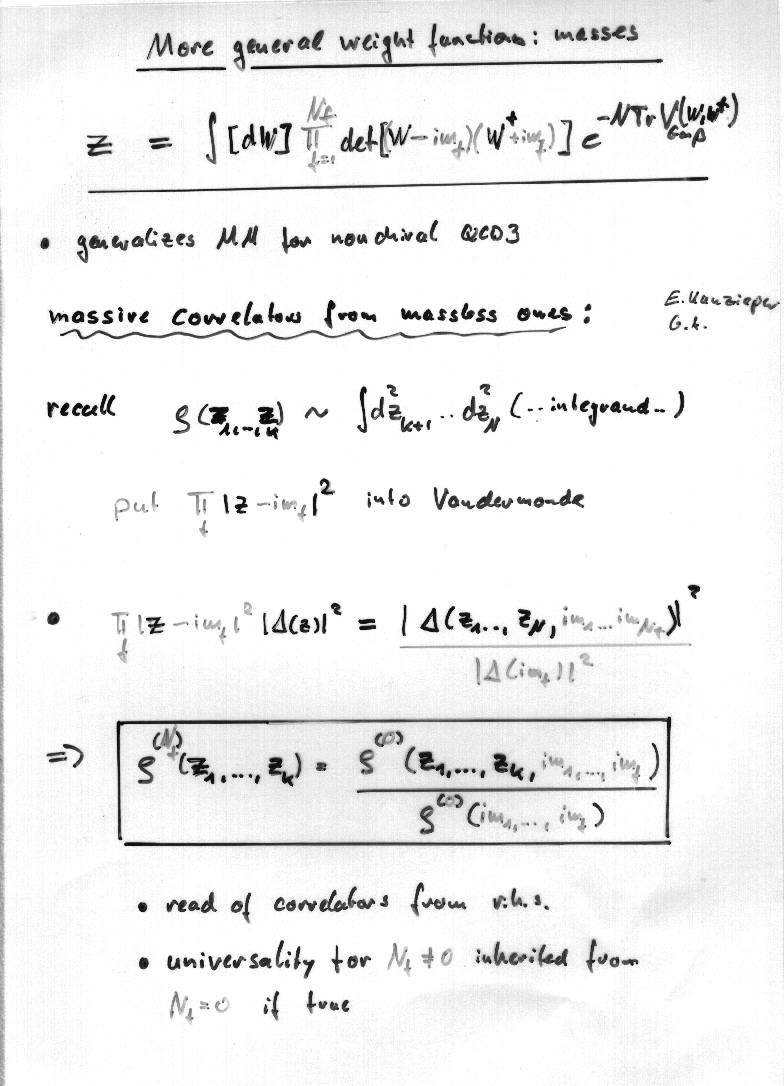 More general weight functions: masses
Z = ∫ [dW] ∏_{f=1}^{N_f} det[(W - im_f)(W^† + im_f)] e^{-N Tr V(W,W^†)}
• generalizes MM for nonchiral QCD3
massive correlators from massless ones:
E. Kanzieper
G. A.
recall ρ(z_1,...,z_k) ~ ∫ d²z_{k+1} .. d²z_N (.. integrand ..)
put ∏_f |z - im_f|² into Vandermonde
• ∏_f |z - im_f|² |Δ(z)|² = |Δ(z_1.., z_N, im_1...im_{N_f})|² / |Δ(im_f)|²
=> ρ^{(N_f)}(z_1,...,z_k) = ρ^{(0)}(z_1,...,z_k, im_1,...,im_f) / ρ^{(0)}(im_1,...,im_f)
• read of correlators from r.h.s.
• universality for N_f ≠ 0 inherited from
N_f = 0 if true